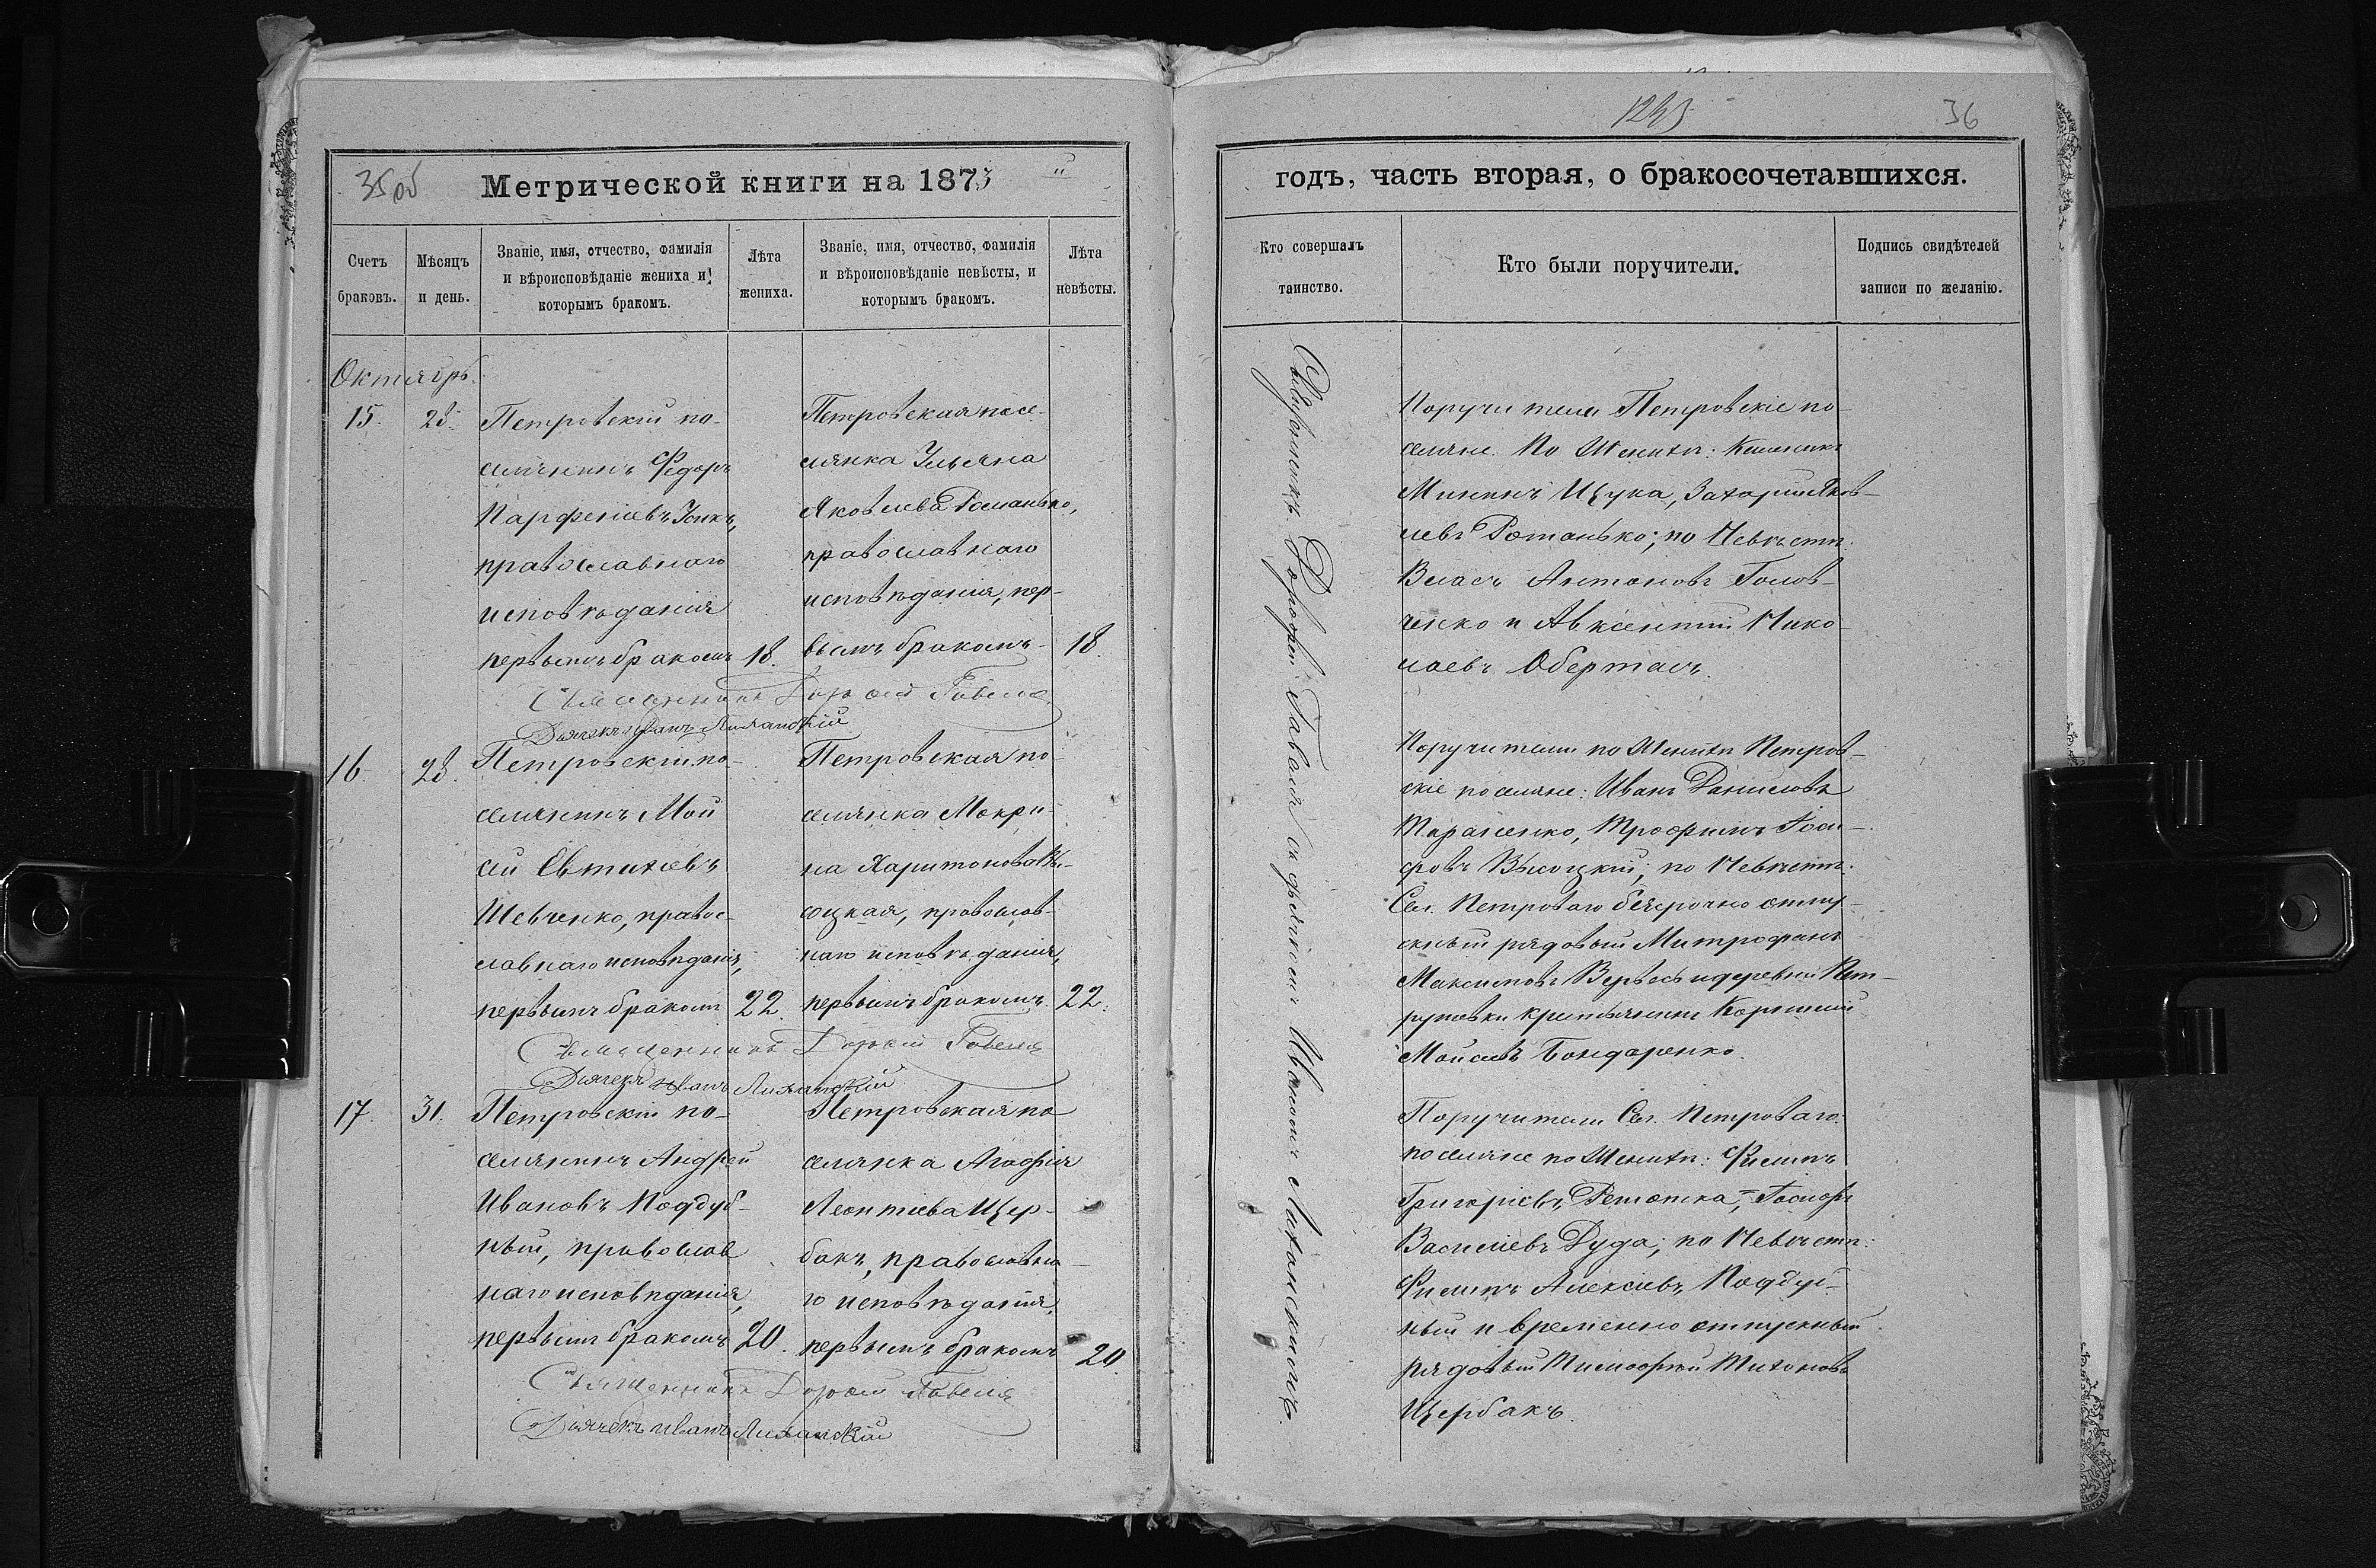 35об
Метрической книги на 1873 й
Счетъ браковъ.
Мѣсяцъ и день.
Званіе, имя, отчество, фамилія и вѣроисповѣданіе жениха и которымъ бракомъ.
Лѣта жениха.
Званіе, имя, отчество, фамилія и вѣроисповѣданіе невѣсты, и которымъ бракомъ.
Лѣта невѣсты.
Октябрь.
15.
28.
Петровскій по-
селянинъ Ѳедоръ
Парфеніевъ
православнаго
исповѣданія
первымъ бракомъ
18.
Петровская посе-
лянка Ульяна
Яковлева Романько,
православнаго
исповѣданія, пер-
вымъ бракомъ
18
Священникъ Дорофей Гавеля
Дьячекъ Иванъ Лиханскій
16.
28.
Петровскій по-
селянинъ Мои
сей Евтихіевъ
Шевченко, правос-
лавнаго исповѣданія,
первымъ бракомъ
22.
Петровская по-
селянка Макри-
на Харитонова Вы-
соцкая, православ-
наго исповѣданія,
первымъ бракомъ.
22.
Священникъ Дорофей Гавеля
Дьячекъ Иванъ Лиханскій
17.
31.
Петровскій по-
селянинъ Андрей
Ивановъ Поддуб-
ный, православ
наго исповѣданія,
первымъ бракомъ
20.
Петровская по
селянка Агафія
Леонтіева Щер-
бакъ, православна-
го исповѣданія,
первымъ бракомъ
20
Священникъ Дорофей Гавеля
Дьячекъ Иванъ Лиханскій
36
годъ, часть вторая, о бракосочетавшихся.
Кто совершалъ таинство.
Кто были поручители.
Подпись свидѣтелей записи по желанію.
Священникъ Дорофей Гавеля съ дьячкомъ Иваномъ Лиханскимъ.
Поручители Петровскіе по-
селяне. По Женихѣ:
Мининъ Щука, Захарій Яков-
левъ Романько; по Невѣстѣ:
Власъ Антоновъ Голов-
ченко и Авксентій Нико-
лаевъ Обертасъ.
Поручители по Женихѣ Петров-
скіе поселяне: Иванъ Даніиловъ
Тарасенко, Трофимъ
Высоцкій; по Невѣстѣ:
Сел. Петроваго безсрочно отпу-
скный рядовый Митрофанъ
Максимовъ и деревни Пет-
ровки крестьянинъ Корнилій
Моисеевъ Бондаренко.
Поручители Сел. Петроваго
поселяне по Женихѣ: Филипъ
Григоріевъ
Василіевъ Дуда; по Невѣстѣ:
Филипъ Алексіевъ Поддуб-
ный и временно отпускный
рядовый Тимофей Тихоновъ
Щербакъ.